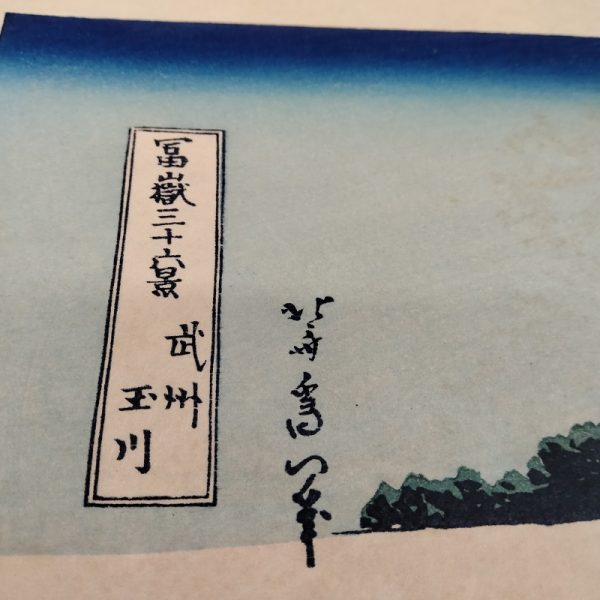 冨嶽三十六景
武州
玉川
北斎爲一筆